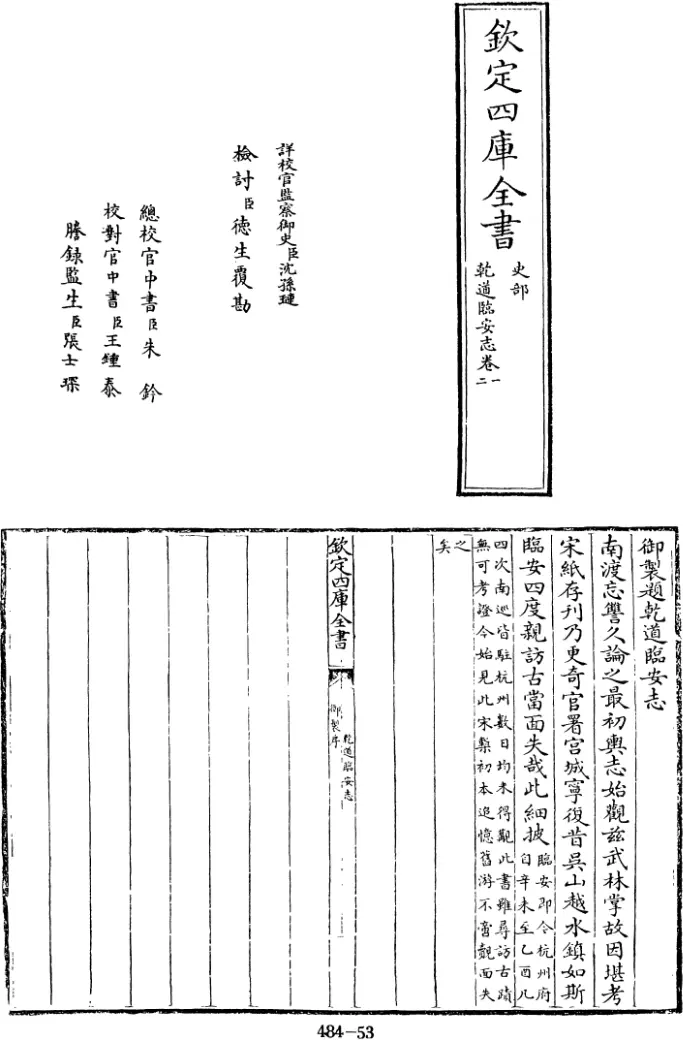 欽定四庫全書
史部
乾道臨安志卷一
二
詳校官監察御史臣沈孫璉
檢討臣德生覆勘
總校官中書臣朱鈐
校對官中書臣王鍾泰
謄錄監生臣張士琛
御製題乾道臨安志
南渡忘讐久論之最初輿志始觀茲武林掌故因堪考
宋紙存刊乃更奇官署宫城寧復昔吳山越水鎮如斯
臨安四度親訪古當面失哉此細披
臨安即今杭州府
自辛未至乙酉凡
四次南巡皆駐杭州數日均未得觀此書雖尋訪古蹟
無可考證今始見此宋槧初本追憶舊游不啻覿面失
之
矣
欽定四庫全書
御製序
乾道臨安志
484-53